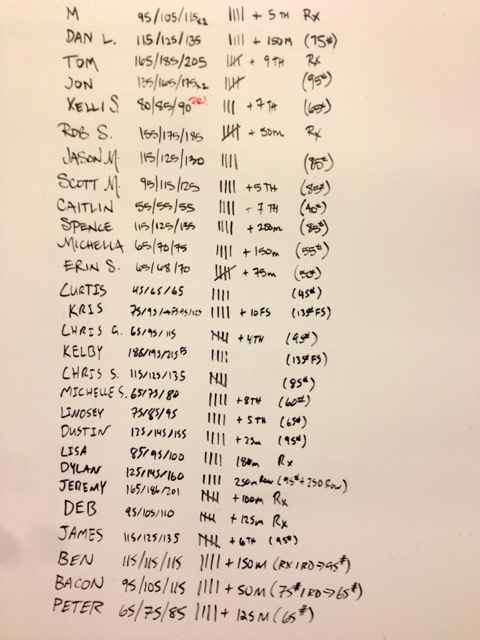 M 95/105/115x2 |||| + 5TH Rx
DAN L. 115/125/135 |||| + 150M (75#)
TOM 165/185/205 |||| + 9TH Rx
JON 135/165/175x2 |||| (95#)
KELLI S. 80/85/90 PR! ||| + 7TH (65#)
ROB S. 155/175/185 |||| + 50m Rx
JASON M. 115/125/130 |||| (85#)
SCOTT M. 95/115/125 |||| + 5TH (85#)
CAITLIN 55/55/55 |||| + 7TH (40#)
SPENCE 115/125/135 |||| + 200m (85#)
MICHELLA 65/70/75 |||| + 150m (55#)
ERIN S. 65/68/70 |||| + 75m (50#)
CURTIS 45/65/65 |||| (45#)
KRIS 75/95/ |||| + 10FS (135# FS)
CHRIS G. 65/95/115 |||| + 4TH (95#)
KELBY 185/195/215 FS |||| (135# FS)
CHRIS S. 115/125/135 |||| (85#)
MICHELLE S. 65/75/80 |||| + 8TH (60#)
LINDSEY 75/85/95 |||| + 5TH (65#)
DUSTIN 135/145/155 |||| + 25m (95#)
LISA 85/95/100 |||| 180m Rx
DYLAN 125/145/160 |||| 250m Row (95# + 250 Row)
JEREMY 165/186/201 |||| + 100m Rx
DEB 95/105/110 |||| + 125m Rx
JAMES 115/125/135 |||| + 6TH (95#)
BEN 115/115/115 |||| + 150M (RX 1RD→95#)
BACON 95/105/115 |||| + 50M (75# 1RD→65#)
PETER 65/75/85 |||| + 125M (65#)